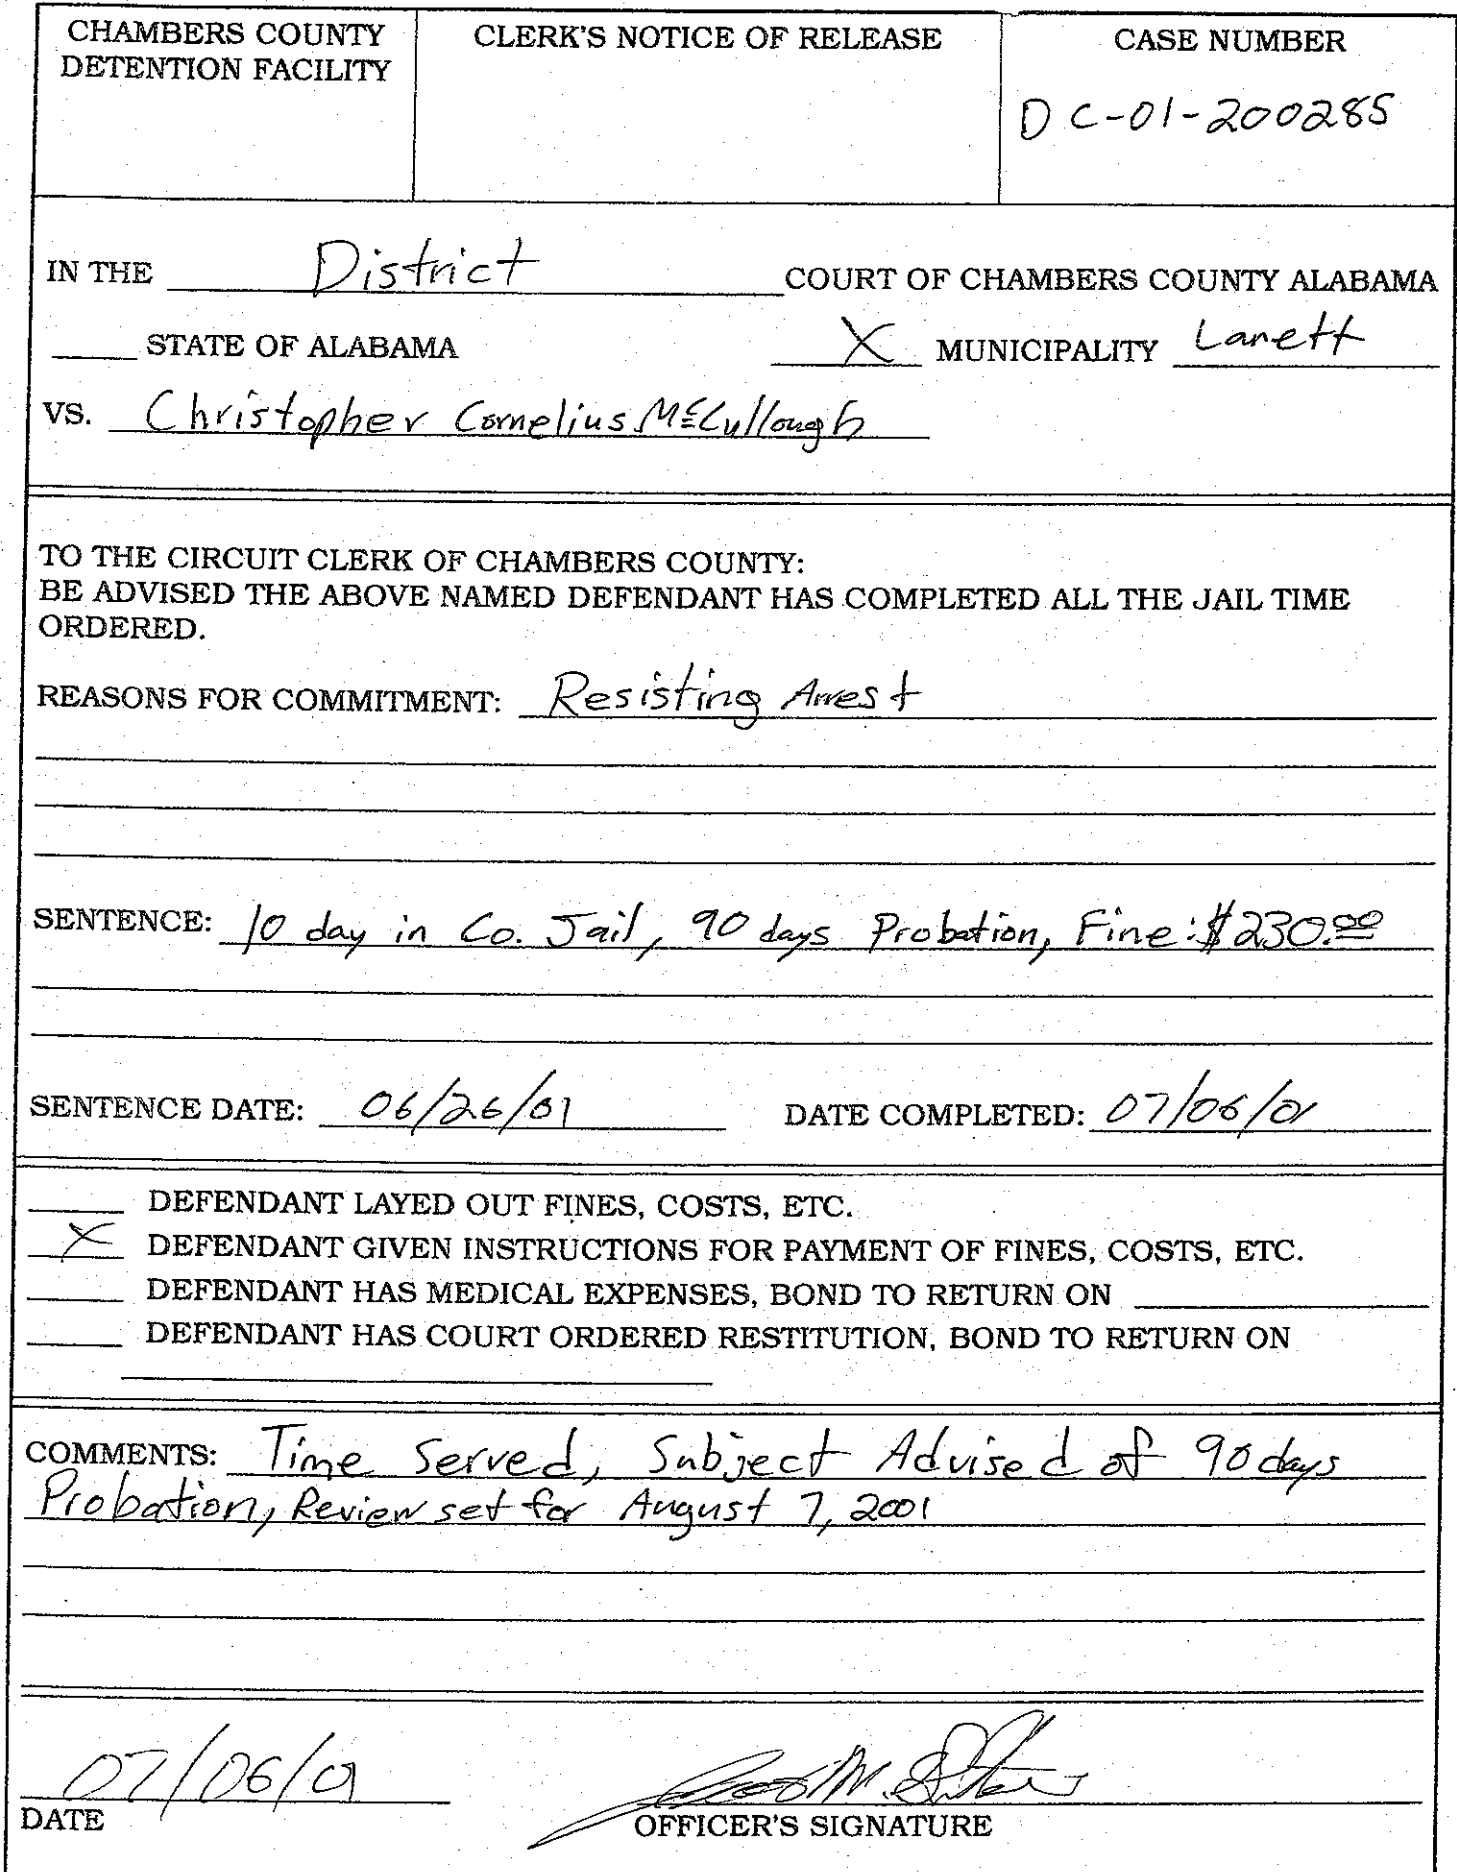 CHAMBERS COUNTY
DETENTION FACILITY
CLERK'S NOTICE OF RELEASE
CASE NUMBER
DC-01-200285
IN THE District COURT OF CHAMBERS COUNTY ALABAMA
____ STATE OF ALABAMA X MUNICIPALITY Lanett
VS. Christopher Cornelius McCullough
TO THE CIRCUIT CLERK OF CHAMBERS COUNTY:
BE ADVISED THE ABOVE NAMED DEFENDANT HAS COMPLETED ALL THE JAIL TIME
ORDERED.
REASONS FOR COMMITMENT: Resisting Arrest
SENTENCE: 10 day in Co. Jail, 90 days Probation, Fine: $230.00
SENTENCE DATE: 06/26/01 DATE COMPLETED: 07/06/01
____ DEFENDANT LAYED OUT FINES, COSTS, ETC.
X DEFENDANT GIVEN INSTRUCTIONS FOR PAYMENT OF FINES, COSTS, ETC.
____ DEFENDANT HAS MEDICAL EXPENSES, BOND TO RETURN ON ____
____ DEFENDANT HAS COURT ORDERED RESTITUTION, BOND TO RETURN ON
COMMENTS: Time Served, Subject Advised of 90 days
Probation, Review set for August 7, 2001
07/06/01
DATE
OFFICER'S SIGNATURE